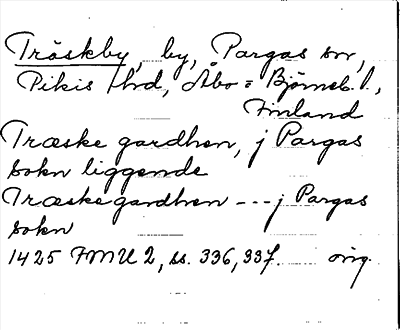 Träskby, by, Pargas sn,
Pikis hd, Åbo = Björneb. l.,
Finland
Træske gardhen, j Pargas
sokn liggende
Træske gardhen --- j Pargas
sokn
1425 FMU 2, ss. 336, 337. orig.